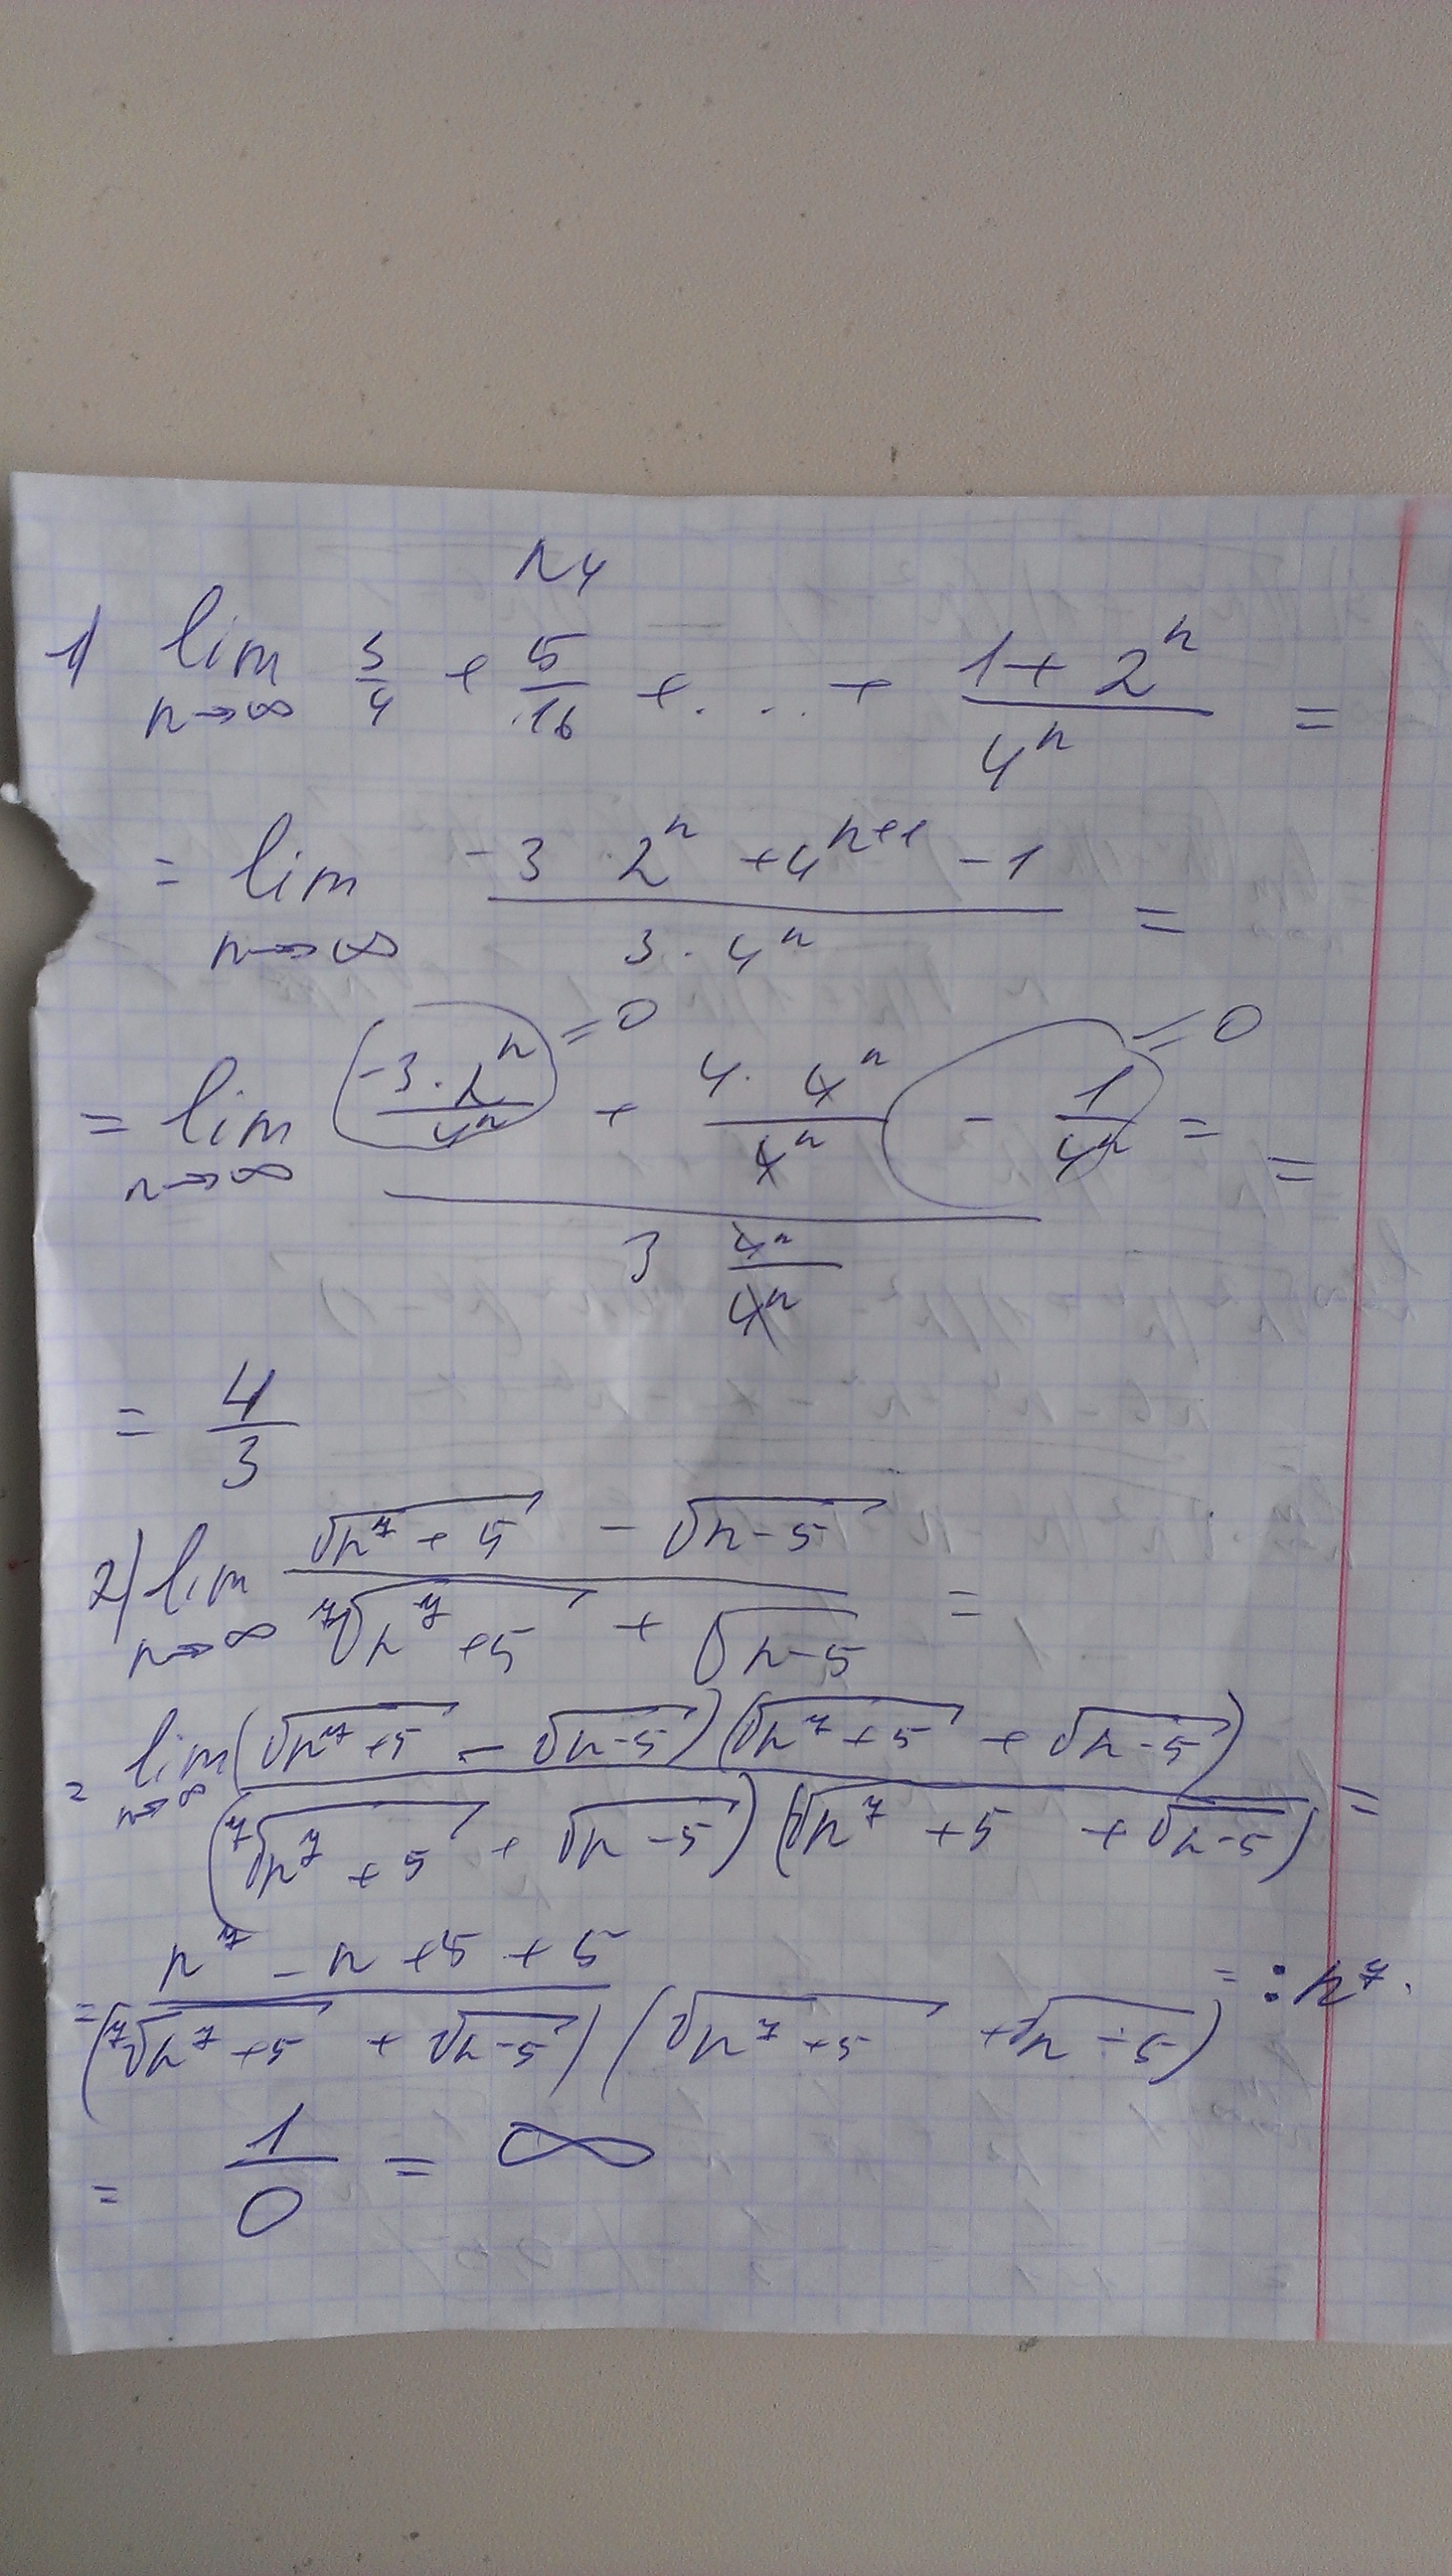 №4
1) lim n→∞ 3/4 + 5/16 + ... + (1 + 2^n)/4^n =
= lim n→∞ (-3 · 2^n + 4^(n+1) - 1)/(3 · 4^n) =
= lim n→∞ ((-3 · 2^n)/4^n = 0 + (4 · 4^n)/4^n - 1/4^n = 0)/(3 4^n/4^n) = =
= 4/3
2) lim n→∞ (√(n^7 + 5) - √(n - 5))/(⁷√(n^7 + 5) + √(n - 5)) =
= lim n→∞ ((√(n^7 + 5) - √(n - 5))(√(n^7 + 5) + √(n - 5)))/((⁷√(n^7 + 5) + √(n - 5))(√(n^7 + 5) + √(n - 5))) =
= (n^7 - n + 5 + 5)/((⁷√(n^7 + 5) + √(n - 5))(√(n^7 + 5) + √(n - 5))) = : n^7.
= 1/0 = ∞